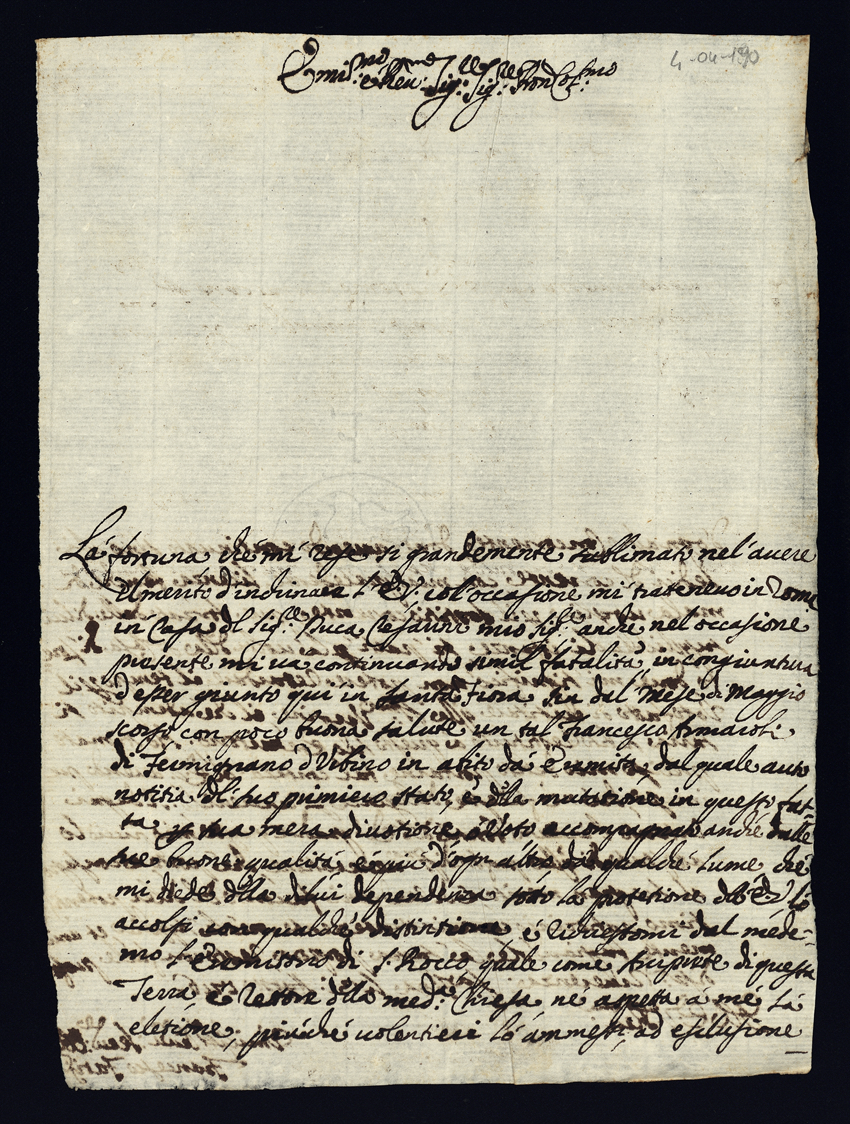 Emi:mo e Reu:mo Sig:re Sig:re Pron Col:mo
4-04-190
La fortuna che mi rese si grandemente sublimato nel'auere
il merito d'inchinarla l'E. V. col'occasione mi tratteneuo in Roma
in Casa del Sig:re Duca Cesarini mio Sig:re, anche nel'occasione
presente mi ua continuando simil fatalità, in congiuntura
d'esser giunto qui in Santa Fiora sin dal Mese di Maggio
scorso con poco buona salute un tal Francesco Armaioli
di Fermignano d'Urbino in abito da Eremita, dal quale auto
notitia del suo primiero stato, e della mutatione in questo fat-
ta p sua mera diuotione è Voto accompagnato anche dalle
sue buone qualità, e più d'ogn'altro da qualche lume che
mi diede della di lui dependenza sotto la protetione del E. V. lo
accolsi con qualche distintione e richiestomi dal mede-
mo l'Eremitorio di S. Rocco, quale come Arciprete di questa
Terra e Rettore della med:a Chiesa ne aspetta à me la
eletione, perìche uolentieri lo ammessi, ad esclusione